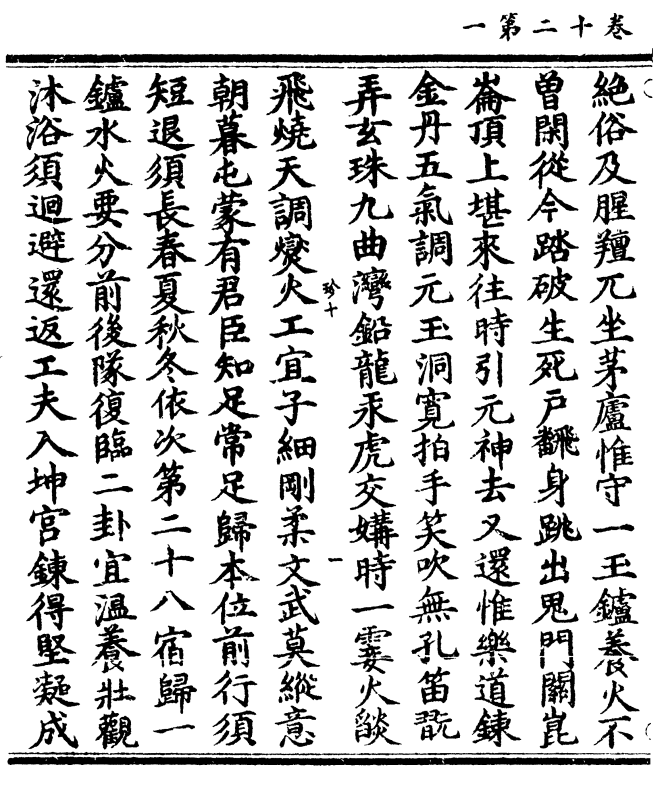 卷十二第一
絶俗及腥羶兀坐茅廬惟守一玉鑪養火不
曽閑從今踏破生死戶飜身跳出鬼門關崑
崙頂上堪來往時引元神去又還惟樂道鍊
金丹五氣調元玉洞寬拍手笑吹無孔笛翫
弄玄珠九曲灣鉛龍汞虎交媾時一霎火燄
飛燒天調燮火工宜子細剛柔文武莫縱意
珍十
一
朝暮屯蒙有君臣知足常足歸本位前行須
短退須長春夏秋冬依次第二十八宿歸一
鑪水火要分前後隊復臨二卦宜溫養壯觀
沐浴須迴避還返工夫入坤宮鍊得堅凝成